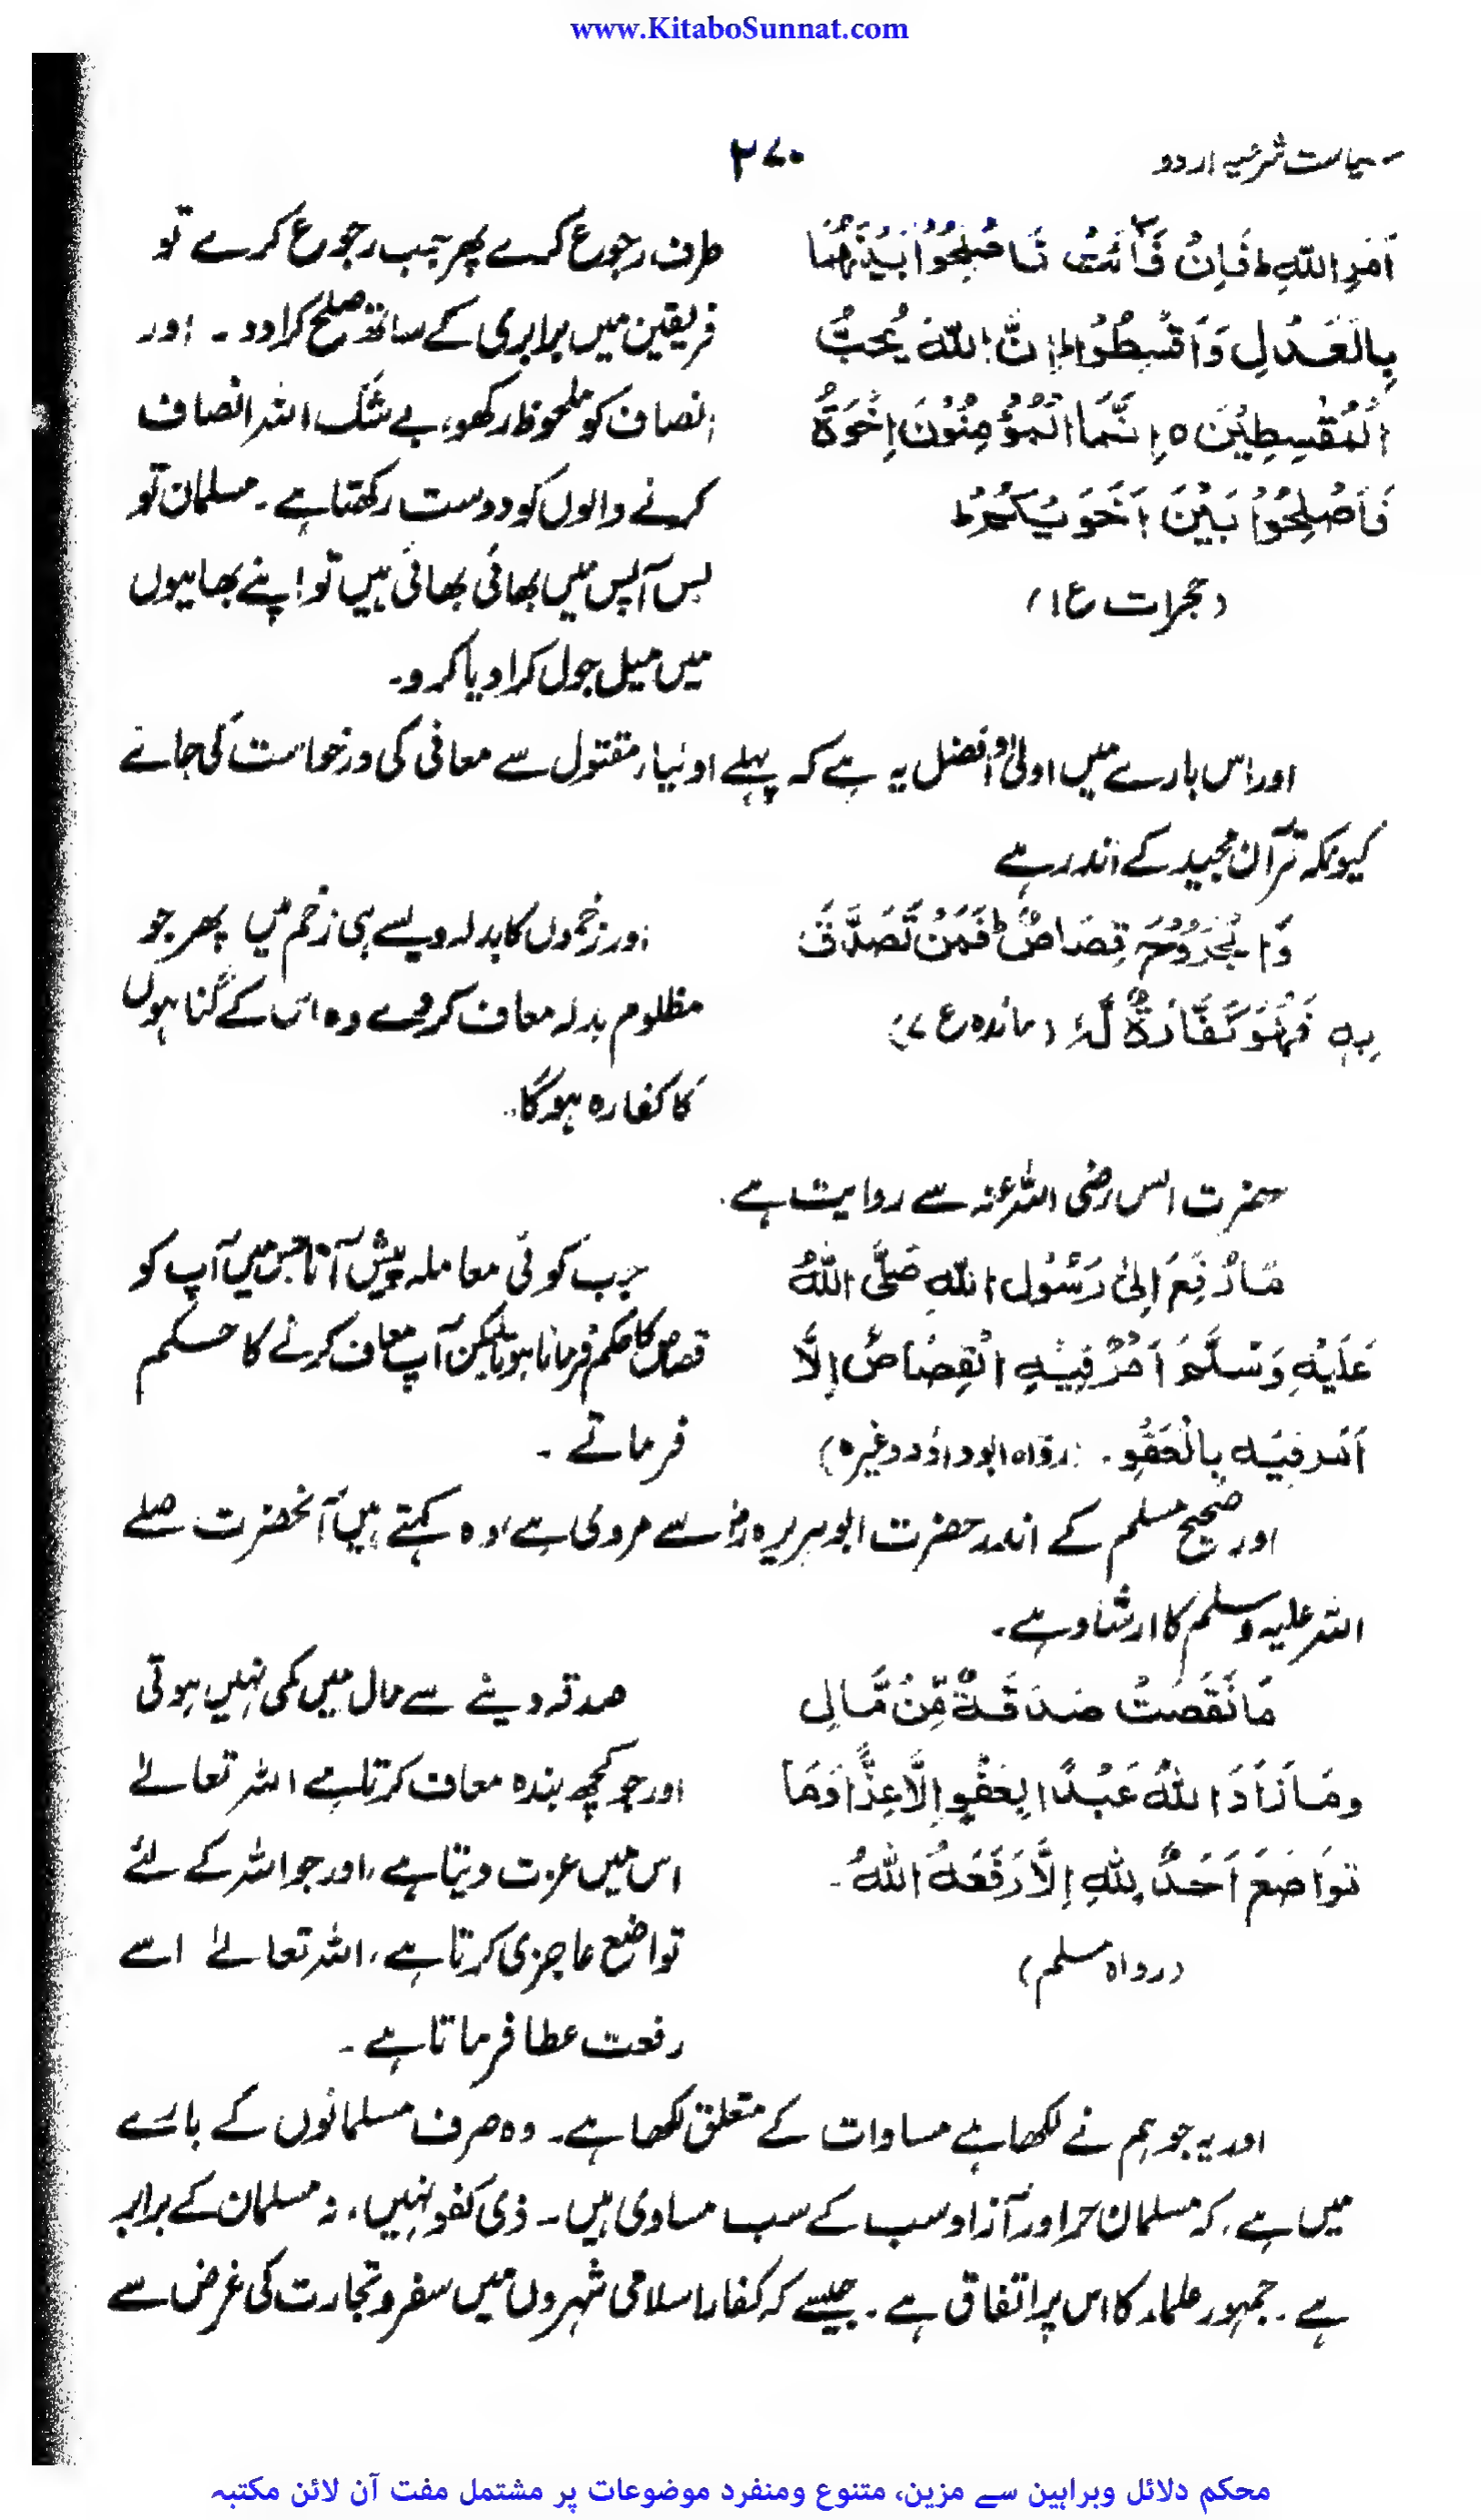 www.KitaboSunnat.com
سیاست شرعیہ اردو
۲۷۰
اَمْرِ اللّٰهِ ط فَاِنْ فَآئَتْ فَاَصْلِحُوْا بَيْنَهُمَا
بِالْعَدْلِ وَاَقْسِطُوْا ط اِنَّ اللّٰهَ يُحِبُّ
الْمُقْسِطِيْنَ ه اِنَّمَا الْمُؤْمِنُوْنَ اِخْوَةٌ
فَاَصْلِحُوْا بَيْنَ اَخَوَيْكُمْ ط
(حجرات ع ۱)
طرف رجوع کرے پھر جب رجوع کرے تو
فریقین میں برابری کے ساتھ صلح کرا دو ۔ اور
انصاف کو ملحوظ رکھو، بے شک اللہ انصاف
کرنے والوں کو دوست رکھتا ہے ۔ مسلمان تو
بس آپس میں بھائی بھائی ہیں تو اپنے بھائیوں
میں میل جول کرا دیا کرو۔
اور اس بارے میں اولیٰ و افضل یہ ہے کہ پہلے اولیاء مقتول سے معافی کی درخواست کی جائے
کیونکہ قرآن مجید کے اندر ہے
وَالْجُرُوْحَ قِصَاصٌ ط فَمَنْ تَصَدَّقَ
بِهٖ فَهُوَ كَفَّارَةٌ لَّهٗ (مائدہ ع ۷)
اور زخموں کا بدلہ ویسے ہی زخم ہیں پھر جو
مظلوم بدلہ معاف کردے وہ اس کے گناہوں
کا کفارہ ہوگا۔
حضرت انس رضی اللہ عنہ سے روایت ہے۔
مَا رُفِعَ اِلٰی رَسُوْلِ اللّٰهِ صَلَّی اللّٰهُ
عَلَيْهِ وَسَلَّمَ اَمْرٌ فِيْهِ الْقِصَاصُ اِلَّا
اَمَرَ فِيْهِ بِالْعَفْوِ ۔ (رواہ ابوداؤد وغیرہ)
جب کوئی معاملہ پیش آتا جس میں آپ کو
قصاص کا حکم فرمانا ہوتا لیکن آپ معاف کرنے کا حکم
فرماتے ۔
اور صحیح مسلم کے اندر حضرت ابوہریرہ رضؓ سے مروی ہے وہ کہتے ہیں آنحضرت صلے
اللہ علیہ وسلم کا ارشاد ہے۔
مَا نَقَصَتْ صَدَقَةٌ مِّنْ مَّالٍ
وَمَا زَادَ اللّٰهُ عَبْدًا بِعَفْوٍ اِلَّا عِزًّا وَمَا
تَوَاضَعَ اَحَدٌ لِلّٰهِ اِلَّا رَفَعَهُ اللّٰهُ ۔
(رواہ مسلم)
صدقہ دینے سے مال میں کمی نہیں ہوتی
اور جو کچھ بندہ معاف کرتا ہے اللہ تعالےٰ
اس میں عزت دیتا ہے، اور جو اللہ کے لئے
تواضع عاجزی کرتا ہے، اللہ تعالےٰ اسے
رفعت عطا فرماتا ہے ۔
اور یہ جو ہم نے لکھا ہے مساوات کے متعلق لکھا ہے ۔ وہ صرف مسلمانوں کے بارے
میں ہے، کہ مسلمان حر اور آزاد سب کے سب مساوی ہیں ۔ ذمی کفو نہیں، نہ مسلمان کے برابر
ہے ۔ جمہور علماء کا اس پر اتفاق ہے ۔ جیسے کہ کفار اسلامی شہروں میں سفر و تجارت کی غرض سے
محکم دلائل وبراہین سے مزین، متنوع ومنفرد موضوعات پر مشتمل مفت آن لائن مکتبہ